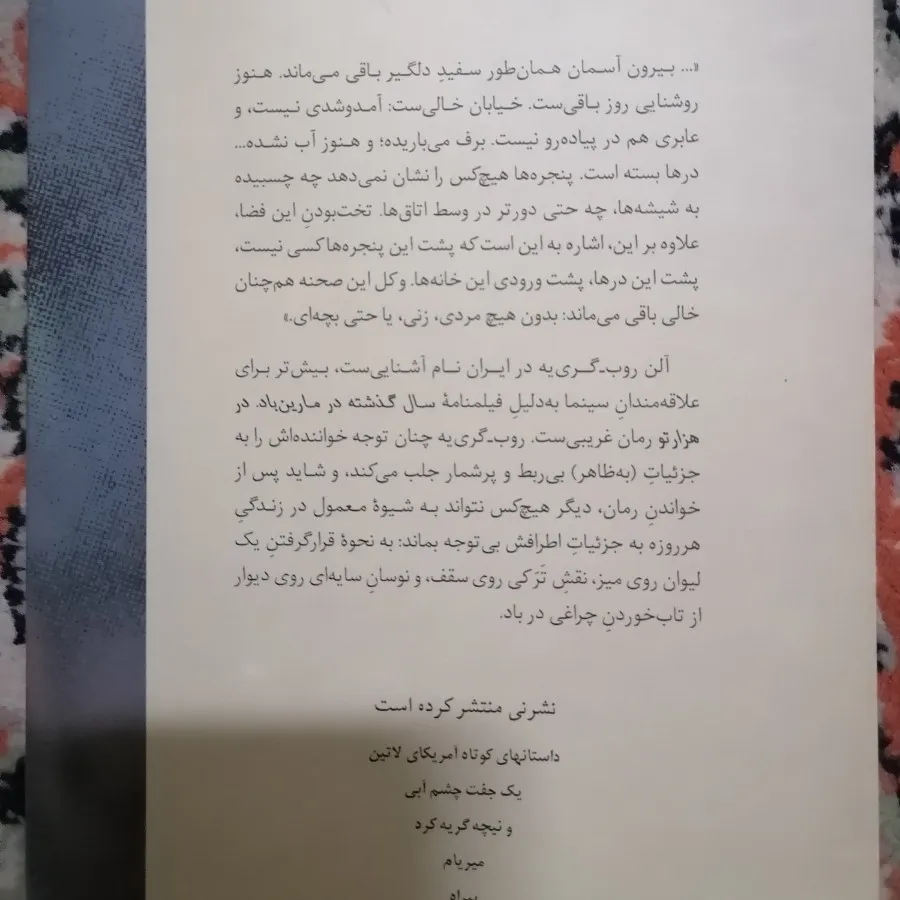 «... بیرون آسمان همان‌طور سفیدِ دلگیر باقی می‌ماند. هنوز
روشنایی روز باقی‌ست. خیابان خالی‌ست: آمدوشدی نیست، و
عابری هم در پیاده‌رو نیست. برف می‌باریده؛ و هنوز آب نشده...
درها بسته است. پنجره‌ها هیچ‌کس را نشان نمی‌دهد چه چسبیده
به شیشه‌ها، چه حتی دورتر در وسط اتاق‌ها. تخت‌بودنِ این فضا،
علاوه بر این، اشاره به این است که پشت این پنجره‌ها کسی نیست،
پشت این درها، پشت ورودی این خانه‌ها. و کل این صحنه هم‌چنان
خالی باقی می‌ماند: بدون هیچ مردی، زنی، یا حتی بچه‌ای.»
آلن روب‌ـگری‌یه در ایران نام آشنایی‌ست، بیش‌تر برای
علاقه‌مندانِ سینما به‌دلیلِ فیلمنامهٔ سال گذشته در مارین‌باد. در
هزارتو رمان غریبی‌ست. روب‌ـگری‌یه چنان توجه خواننده‌اش را به
جزئیاتِ (به‌ظاهر) بی‌ربط و پرشمار جلب می‌کند، و شاید پس از
خواندنِ رمان، دیگر هیچ‌کس نتواند به شیوهٔ معمول در زندگیِ
هرروزه به جزئیاتِ اطرافش بی‌توجه بماند: به نحوهٔ قرارگرفتنِ یک
لیوان روی میز، نقشِ تَرَکی روی سقف، و نوسانِ سایه‌ای روی دیوار
از تاب‌خوردنِ چراغی در باد.
نشرنی منتشر کرده است
داستانهای کوتاه آمریکای لاتین
یک جفت چشم آبی
و نیچه گریه کرد
میریام